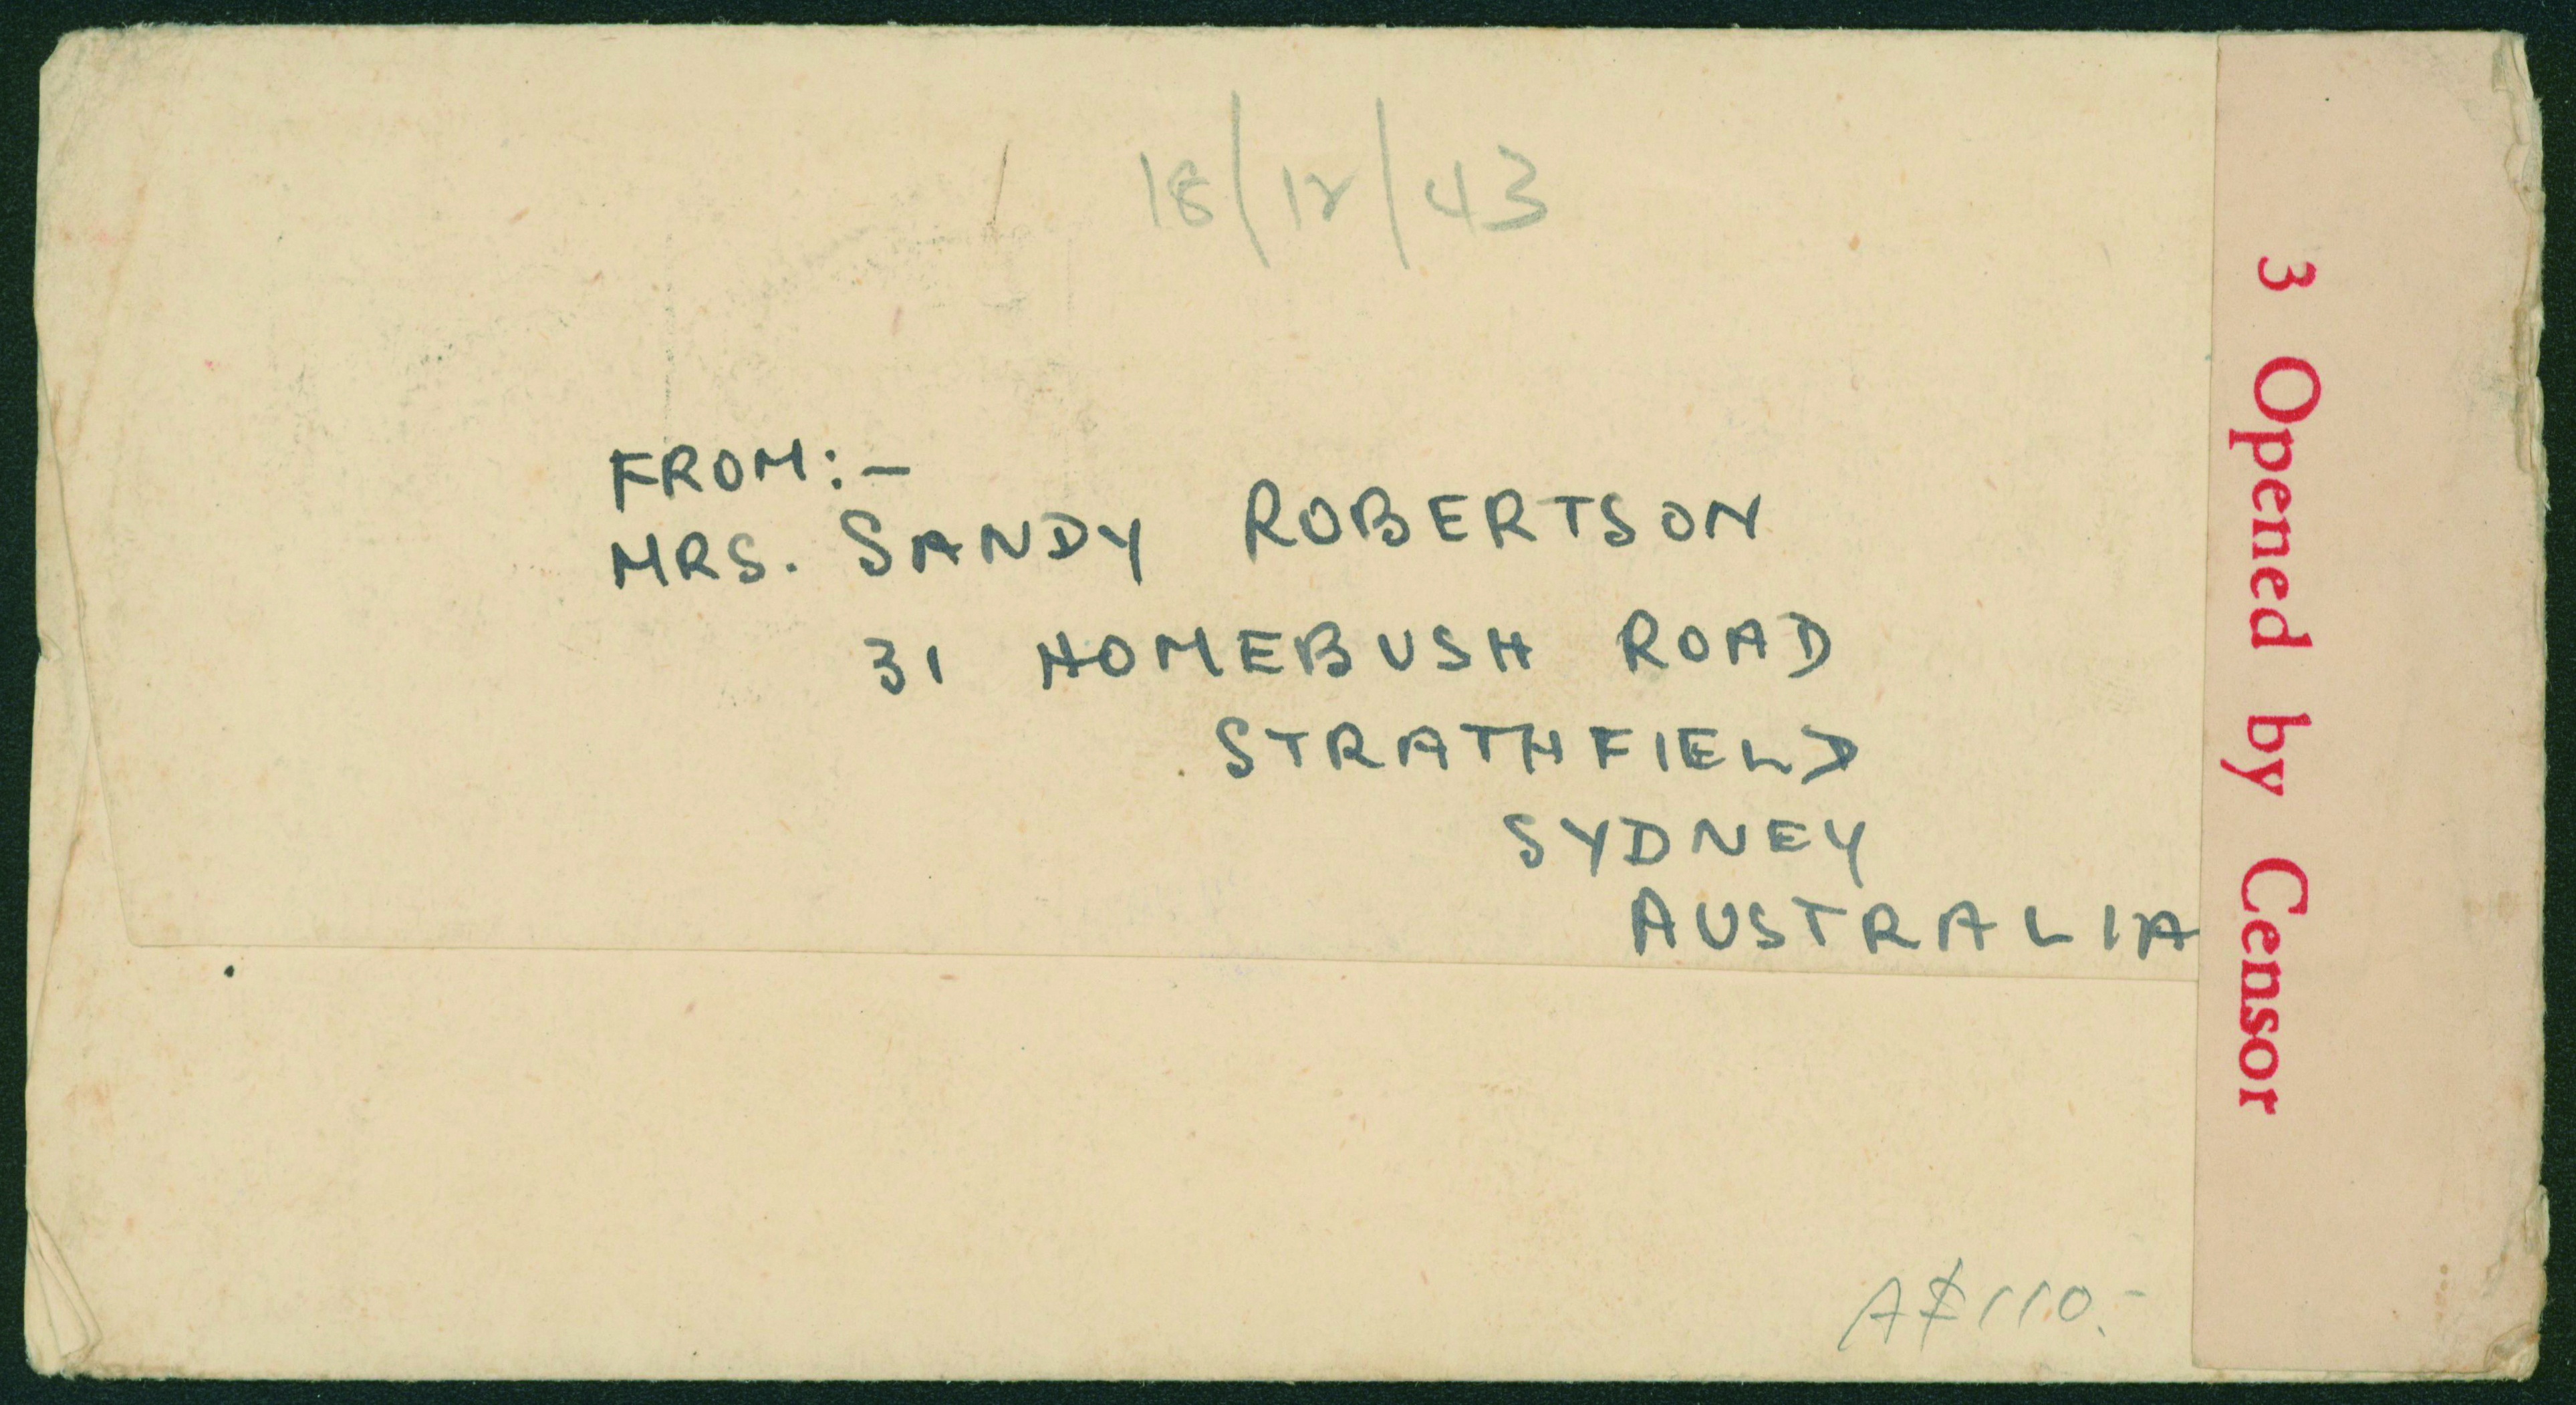 18/12/43
FROM:-
MRS. SANDY ROBERTSON
31 HOMEBUSH ROAD
STRATHFIELD
SYDNEY
AUSTRALIA
3 Opened by Censor
A$110.-